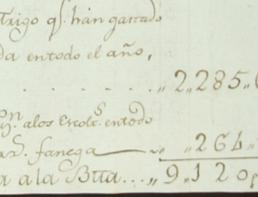 Trigo q.e han gastado
da entodo el año,
. . . . . . „ 2„285„
on. alos Ecole.s entodo
fanega „ „264„
a ala Btta... „ 9„120